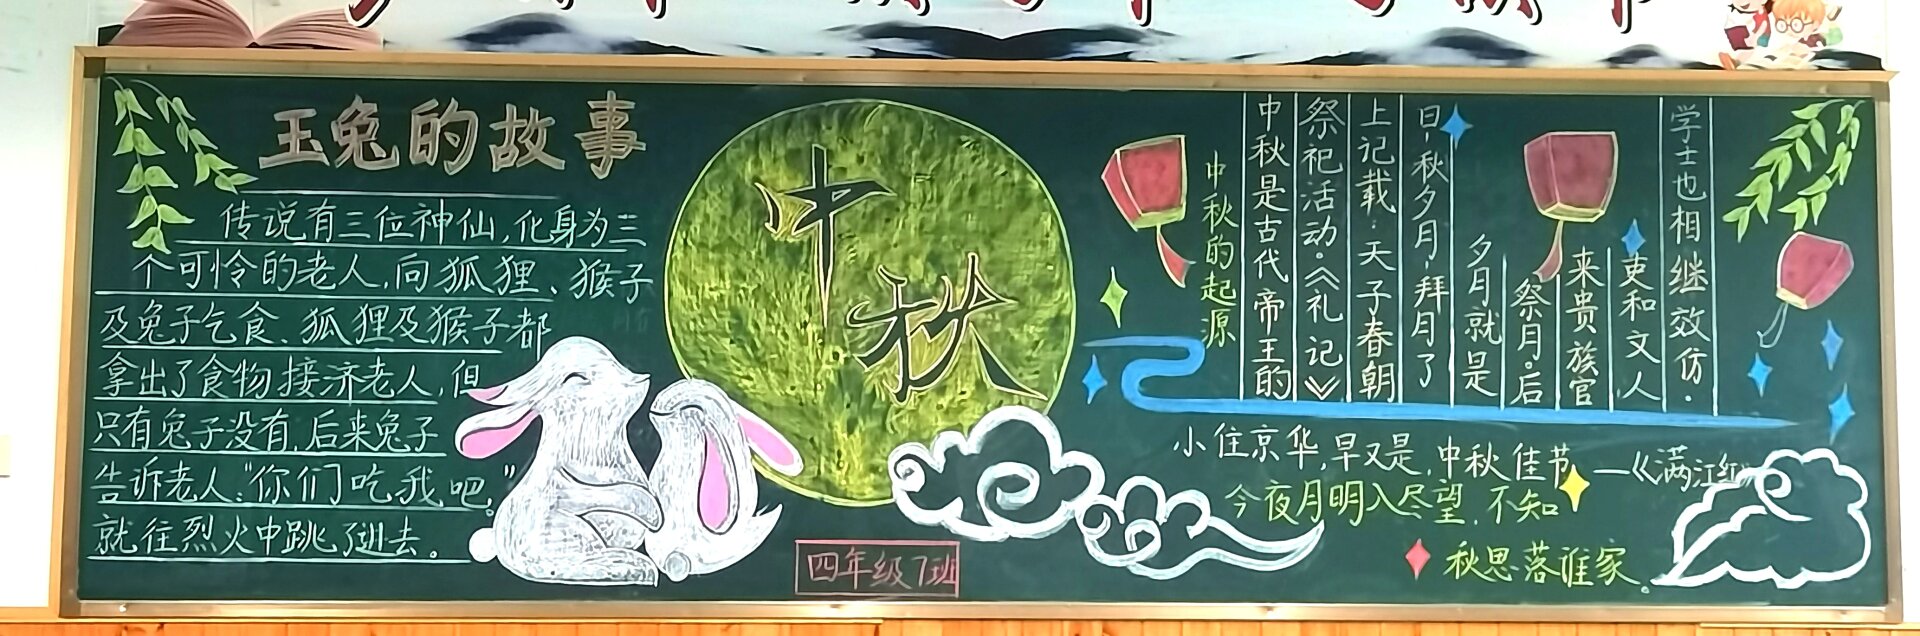 玉兔的故事
传说有三位神仙,化身为三
个可怜的老人,向狐狸、猴子
及兔子乞食、狐狸及猴子都
拿出了食物接济老人,但
只有兔子没有,后来兔子
告诉老人:“你们吃我吧。”
就往烈火中跳了进去。
中秋
四年级7班
中秋的起源
中秋是古代帝王的
祭祀活动。《礼记》
上记载:天子春朝
日,秋夕月,拜月了
夕月就是
祭月。后
来贵族官
吏和文人
学士也相继效仿.
小住京华,早又是,中秋佳节—《满江红》
今夜月明人尽望,不知
秋思落谁家。